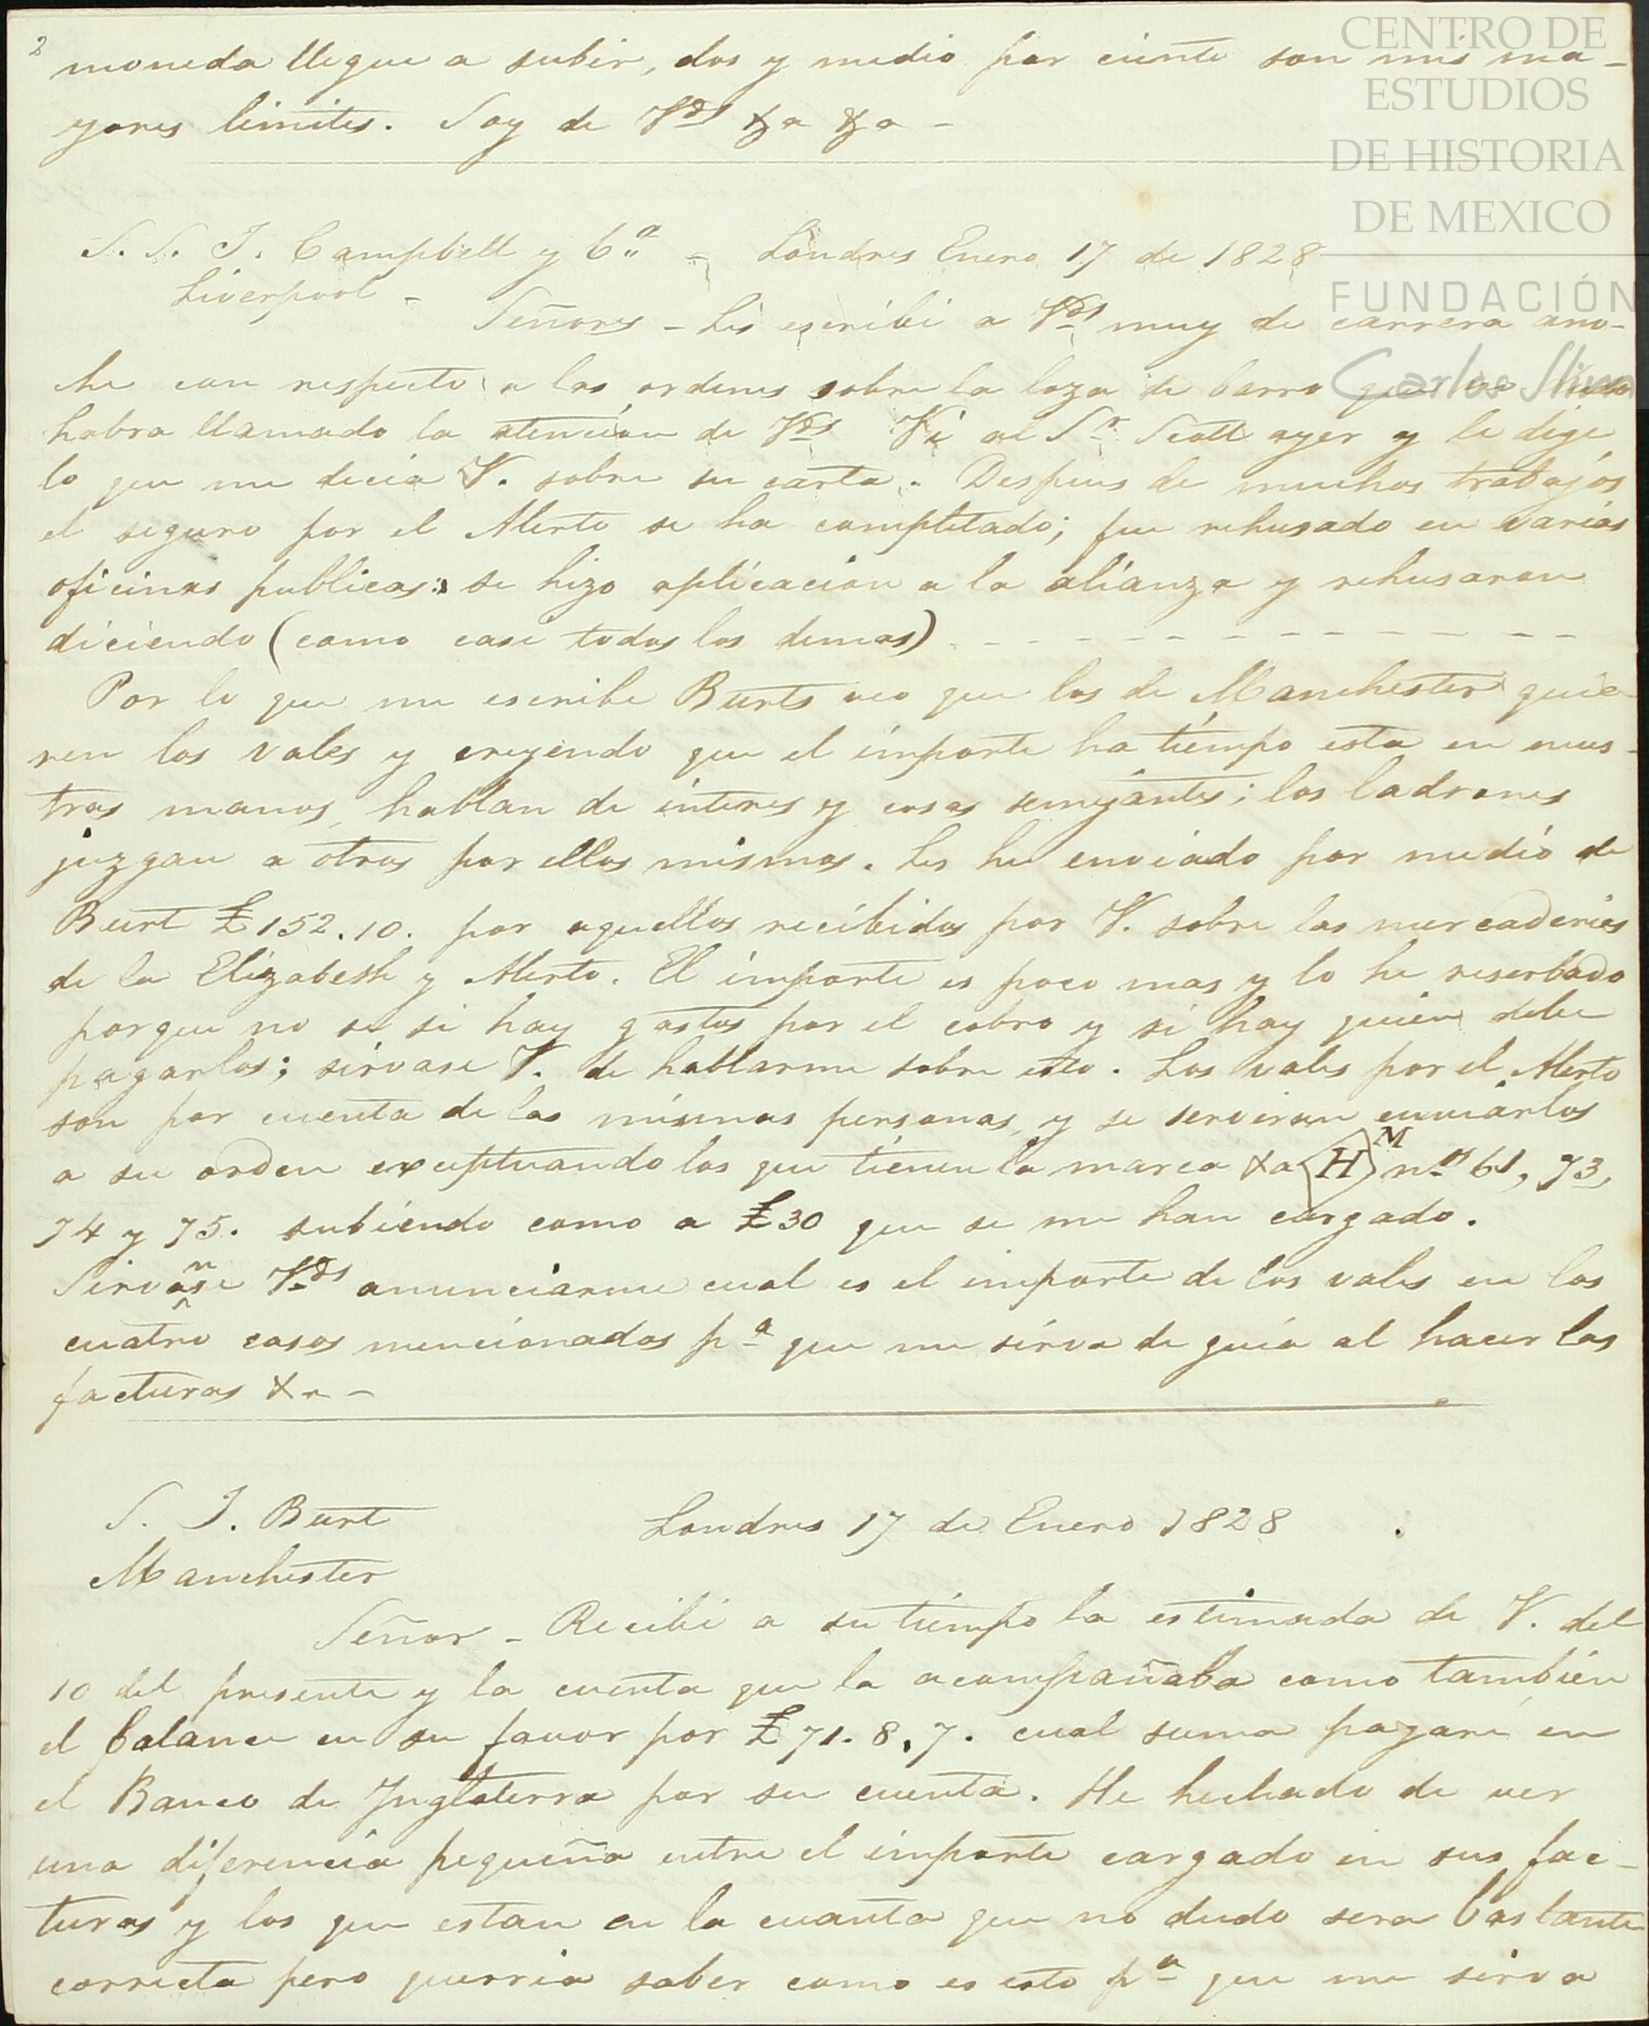 2
moneda llegue a subir, dos y medio por ciento son mis ma-
yores limites. Soy de Vds &a &a -
S. S. J. Campbell y Ca - Londres Enero 17 de 1828
Liverpool -
Señores - Les escribi a Vds muy de carrera ano-
che con respecto a las ordenes sobre la loza de barro que no
habra llamado la atención de Vds Vi al Sr Scott ayer y le dige
lo que me decia V. sobre su carta. Despues de muchos trabajos
el seguro por el Alerto se ha completado; fue rehusado en varias
oficinas publicas: se hizo aplicacion a la alianza y rehusaron
diciendo (como casi todos los demas) - - - - - - - - - - -
Por lo que me escribe Burts veo que los de Manchester quie
ren los vales y creyendo que el importe ha tiempo esta en nues-
tras manos, hablan de interes y cosas semejantes; los ladrones
juzgan a otros por ellos mismos. Les he enviado por medio de
Burt £152.10. por aquellos recibidos por V. sobre las mercaderies
de la Elizabesh y Alerto. El importe es poco mas y lo he reserbado
porque no se si hay gastos por el cobro y si hay quien debe
pagarlos; sirvase V. de hablarme sobre esto. Los vales por el Alerto
son por cuenta de las mismas personas, y se serviran enviarlos
a su orden exceptuando los que tienen la marca &a H M nos 61, 73,
74 y 75. subiendo como a £30 que se me han cargado.
Sirvanse Vds anunciarme cual es el importe de los vales en los
cuatro casos mencionados pa que me sirva de guia al hacer las
facturas &a -
S. J. Burt
Londres 17 de Enero 1828
Manchester
Señor - Recibi a su tiempo la estimada de V. del
10 del presente y la cuenta que la acompañaba como tambien
el balance en su favor por £71.8,7. cual suma pagaré en
el Banco de Inglaterra por su cuenta. He hechado de ver
una diferencia pequeña entre el importe cargado en sus fac-
turas y los que estan en la cuanta que no dudo sera bastante
correcta pero querria saber como es esto pa que me sirva
CENTRO DE
ESTUDIOS
DE HISTORIA
DE MEXICO
FUNDACIÓN
Carlos Slim